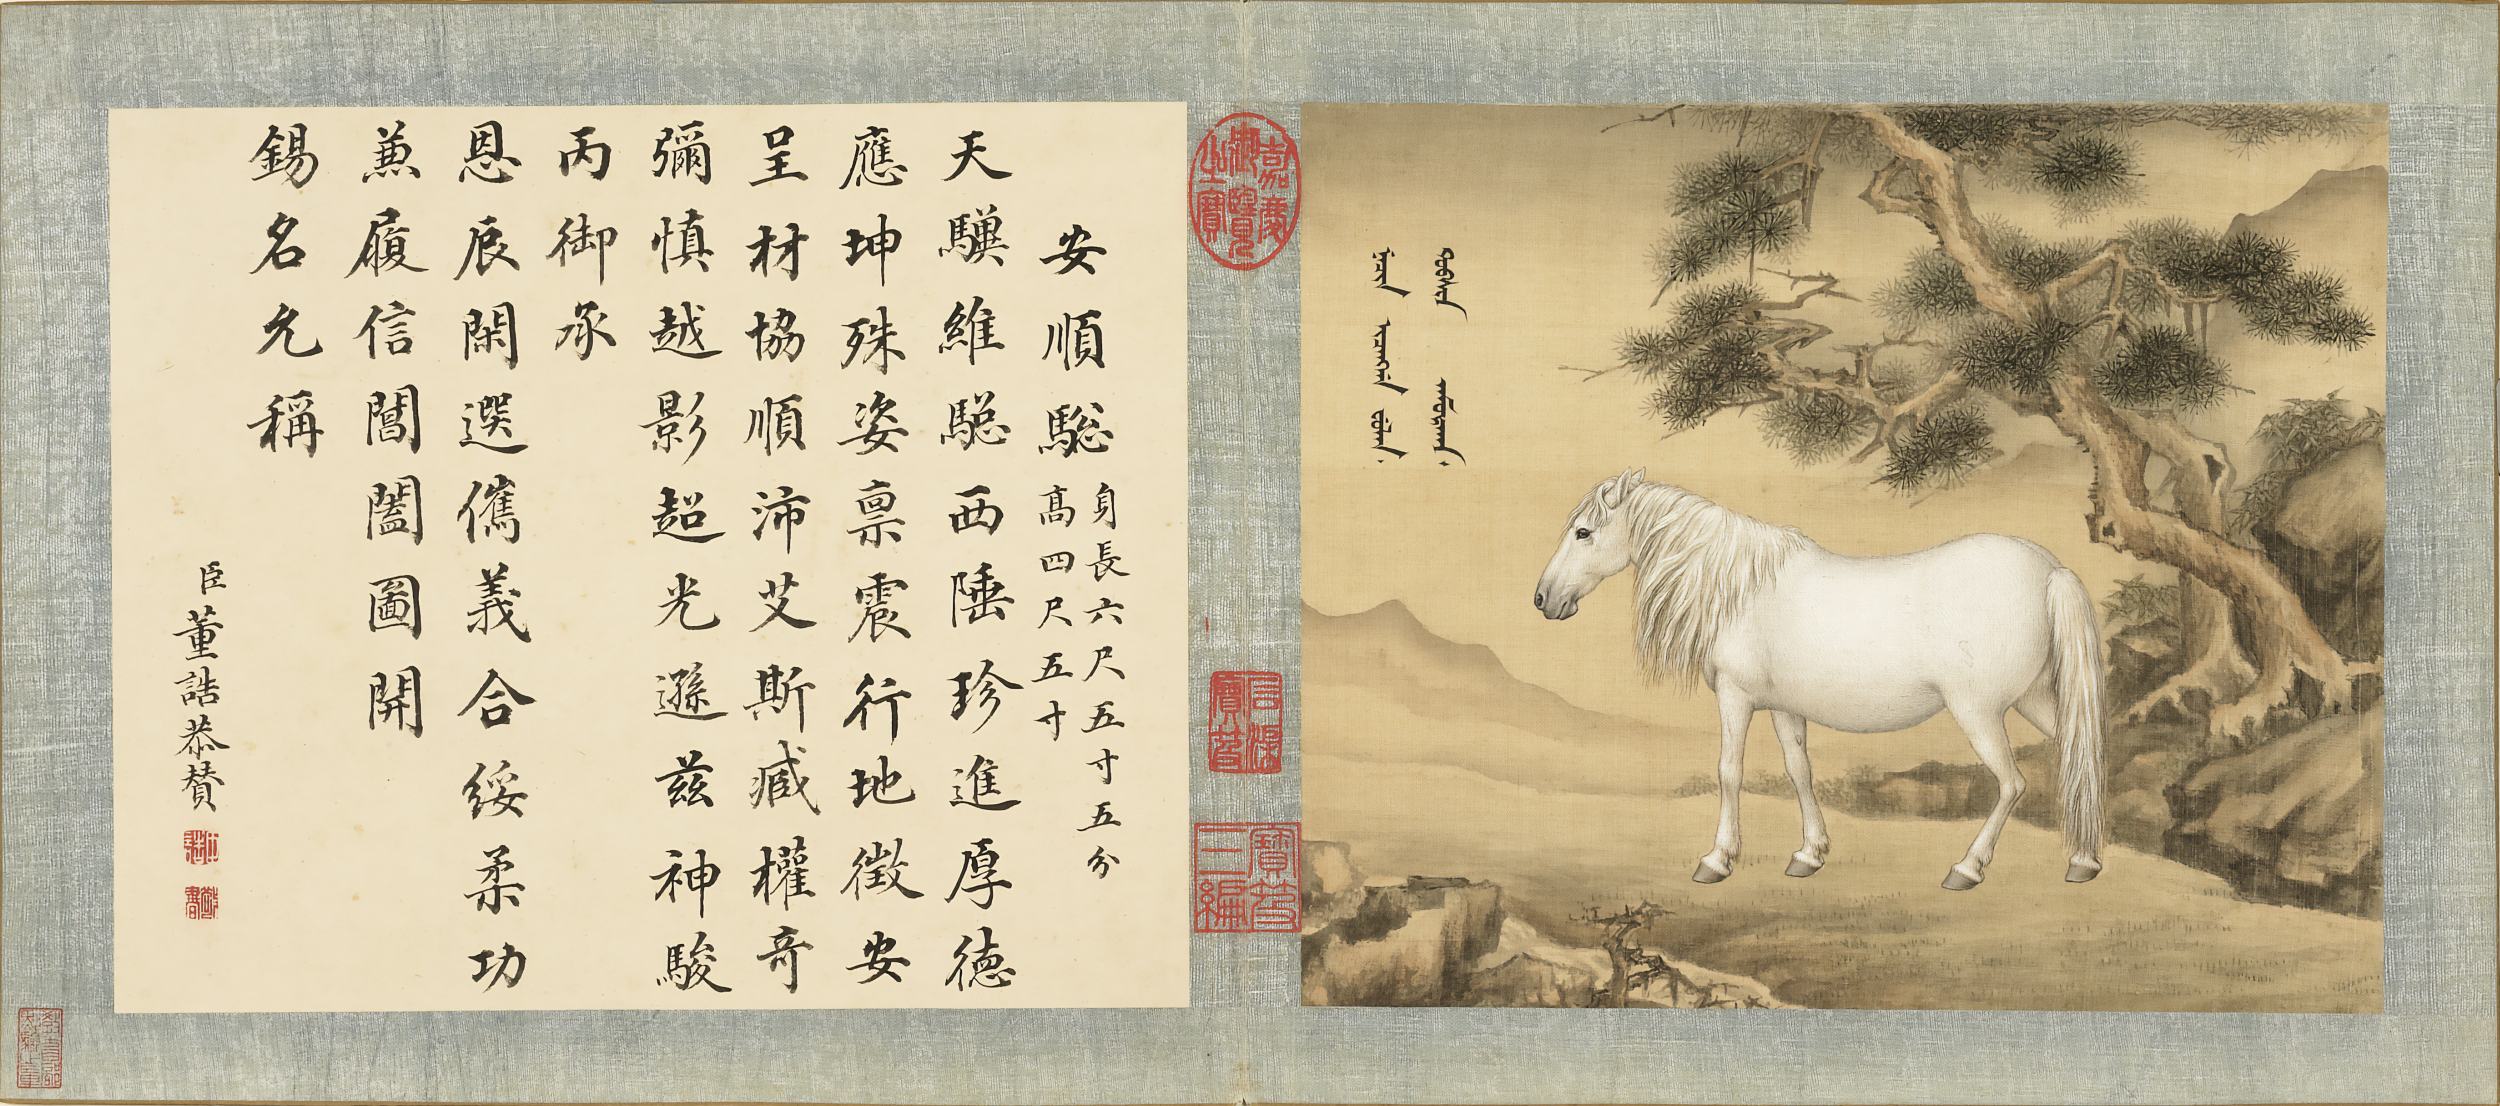 嘉慶御覽之寶
石渠寶笈
寶笈三編
安順騘 身長六尺五寸五分
高四尺五寸
天驥維騘西陲珍進厚德
應坤殊姿禀震行地徵安
呈材協順沛艾斯臧權奇
彌慎越影超光遜茲神駿
丙御承
恩辰閑選儁義合綏柔功
兼履信閶闔圖開
錫名允稱
臣董誥恭贊